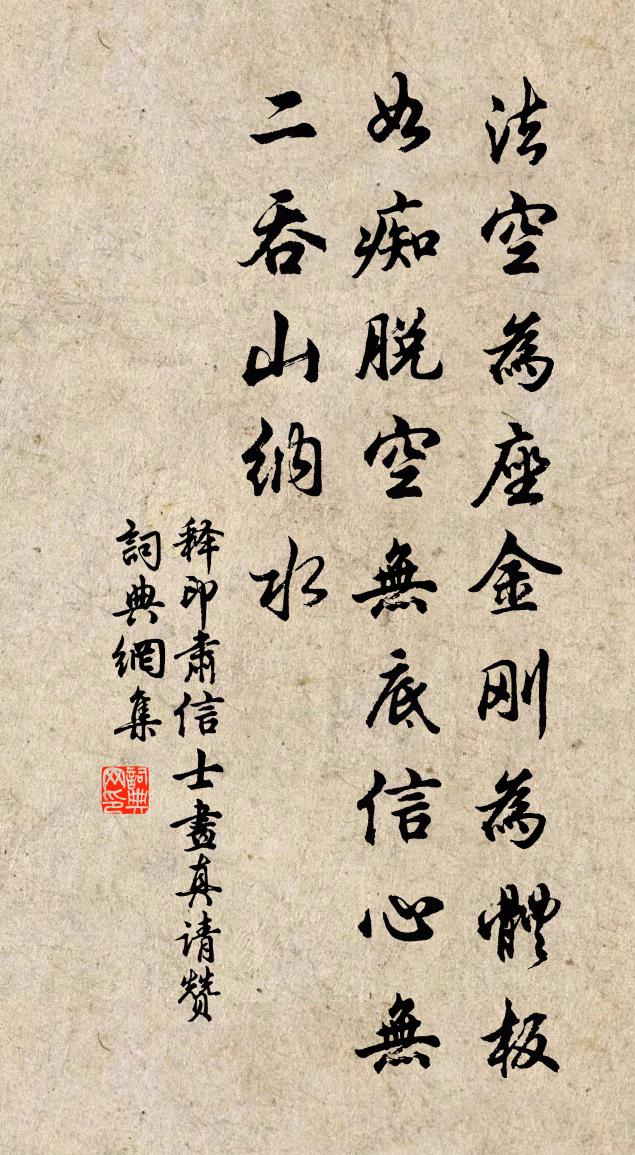 法空為座金剛為體板
如痴脱空無底信心無
二吞山納水
释印肅信士畫真请赞
詞典網集
詞典网印